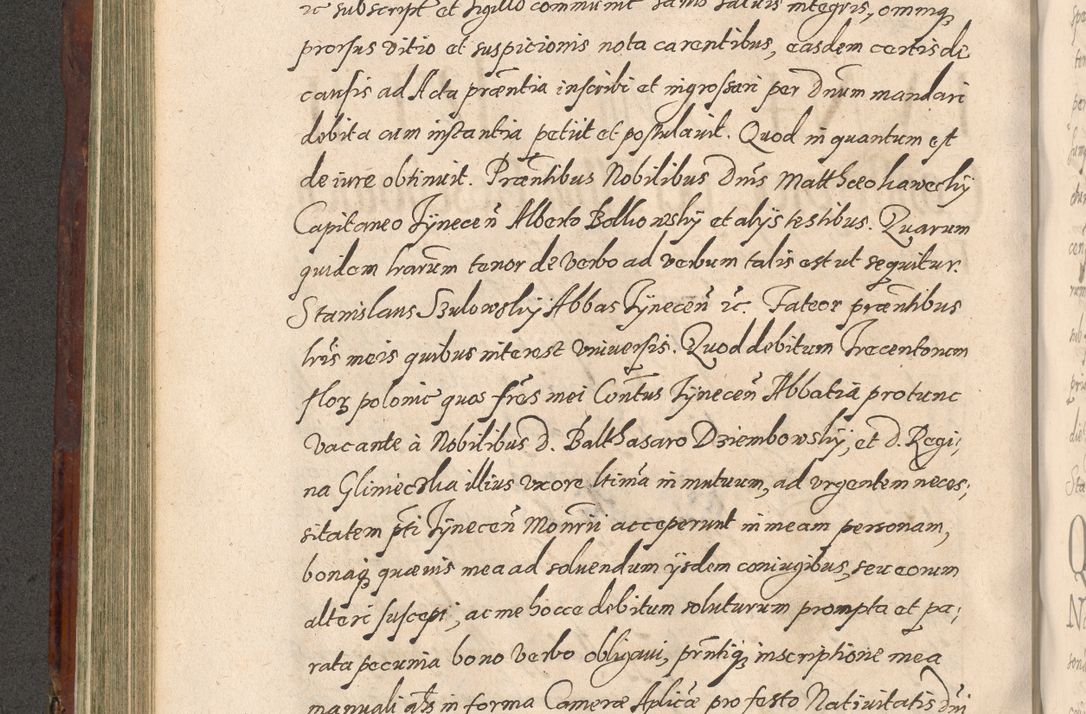 ić subscript et sigillo communit sanis saluis integris, omniq;
prorsus vitio et suspicionis nota carentibus, easdem certis de
causis ad Acta prñtia inscribi et ingrossari per Dnum mandari
debita cum instantia petiit et postulauit. Quod in quantum est
de iure obtinuit. Præntibus Nobilibus Dnis Matthæo
Capitaneo Tynecen Alberto et alys testibus. Quarum
quidem lrarum tenor de verbo ad verbum talis est ut sequitur.
Stanislaus Szulowskÿ Abbas Tynecen ić. Fateor præntibus
lris meis quibus interest vniuersis. Quod debitum Trecentorum
flor polonic quos frēs mei Contus Tynecen Abbatia protunc
vacante à Nobilibus D. Balthasaro Dziembowskÿ, et D. Regi;
na Glimiecska illius vxore ltima in mutuum, ad vrgentem neces;
sitatem pti Tynecen Monrii acceperunt in meam personam,
bonaq; quæuis mea ad soluendum ÿsdem coniugibus, seu eorum
alteri suscepi, ac me hocce debitum soluturum prompta et pa;
rata pecunia bono verbo obligaui, prntiq; inscriptione mea
manuali als in forma Cameræ Aplicæ pro festo Natiuitatis Dni